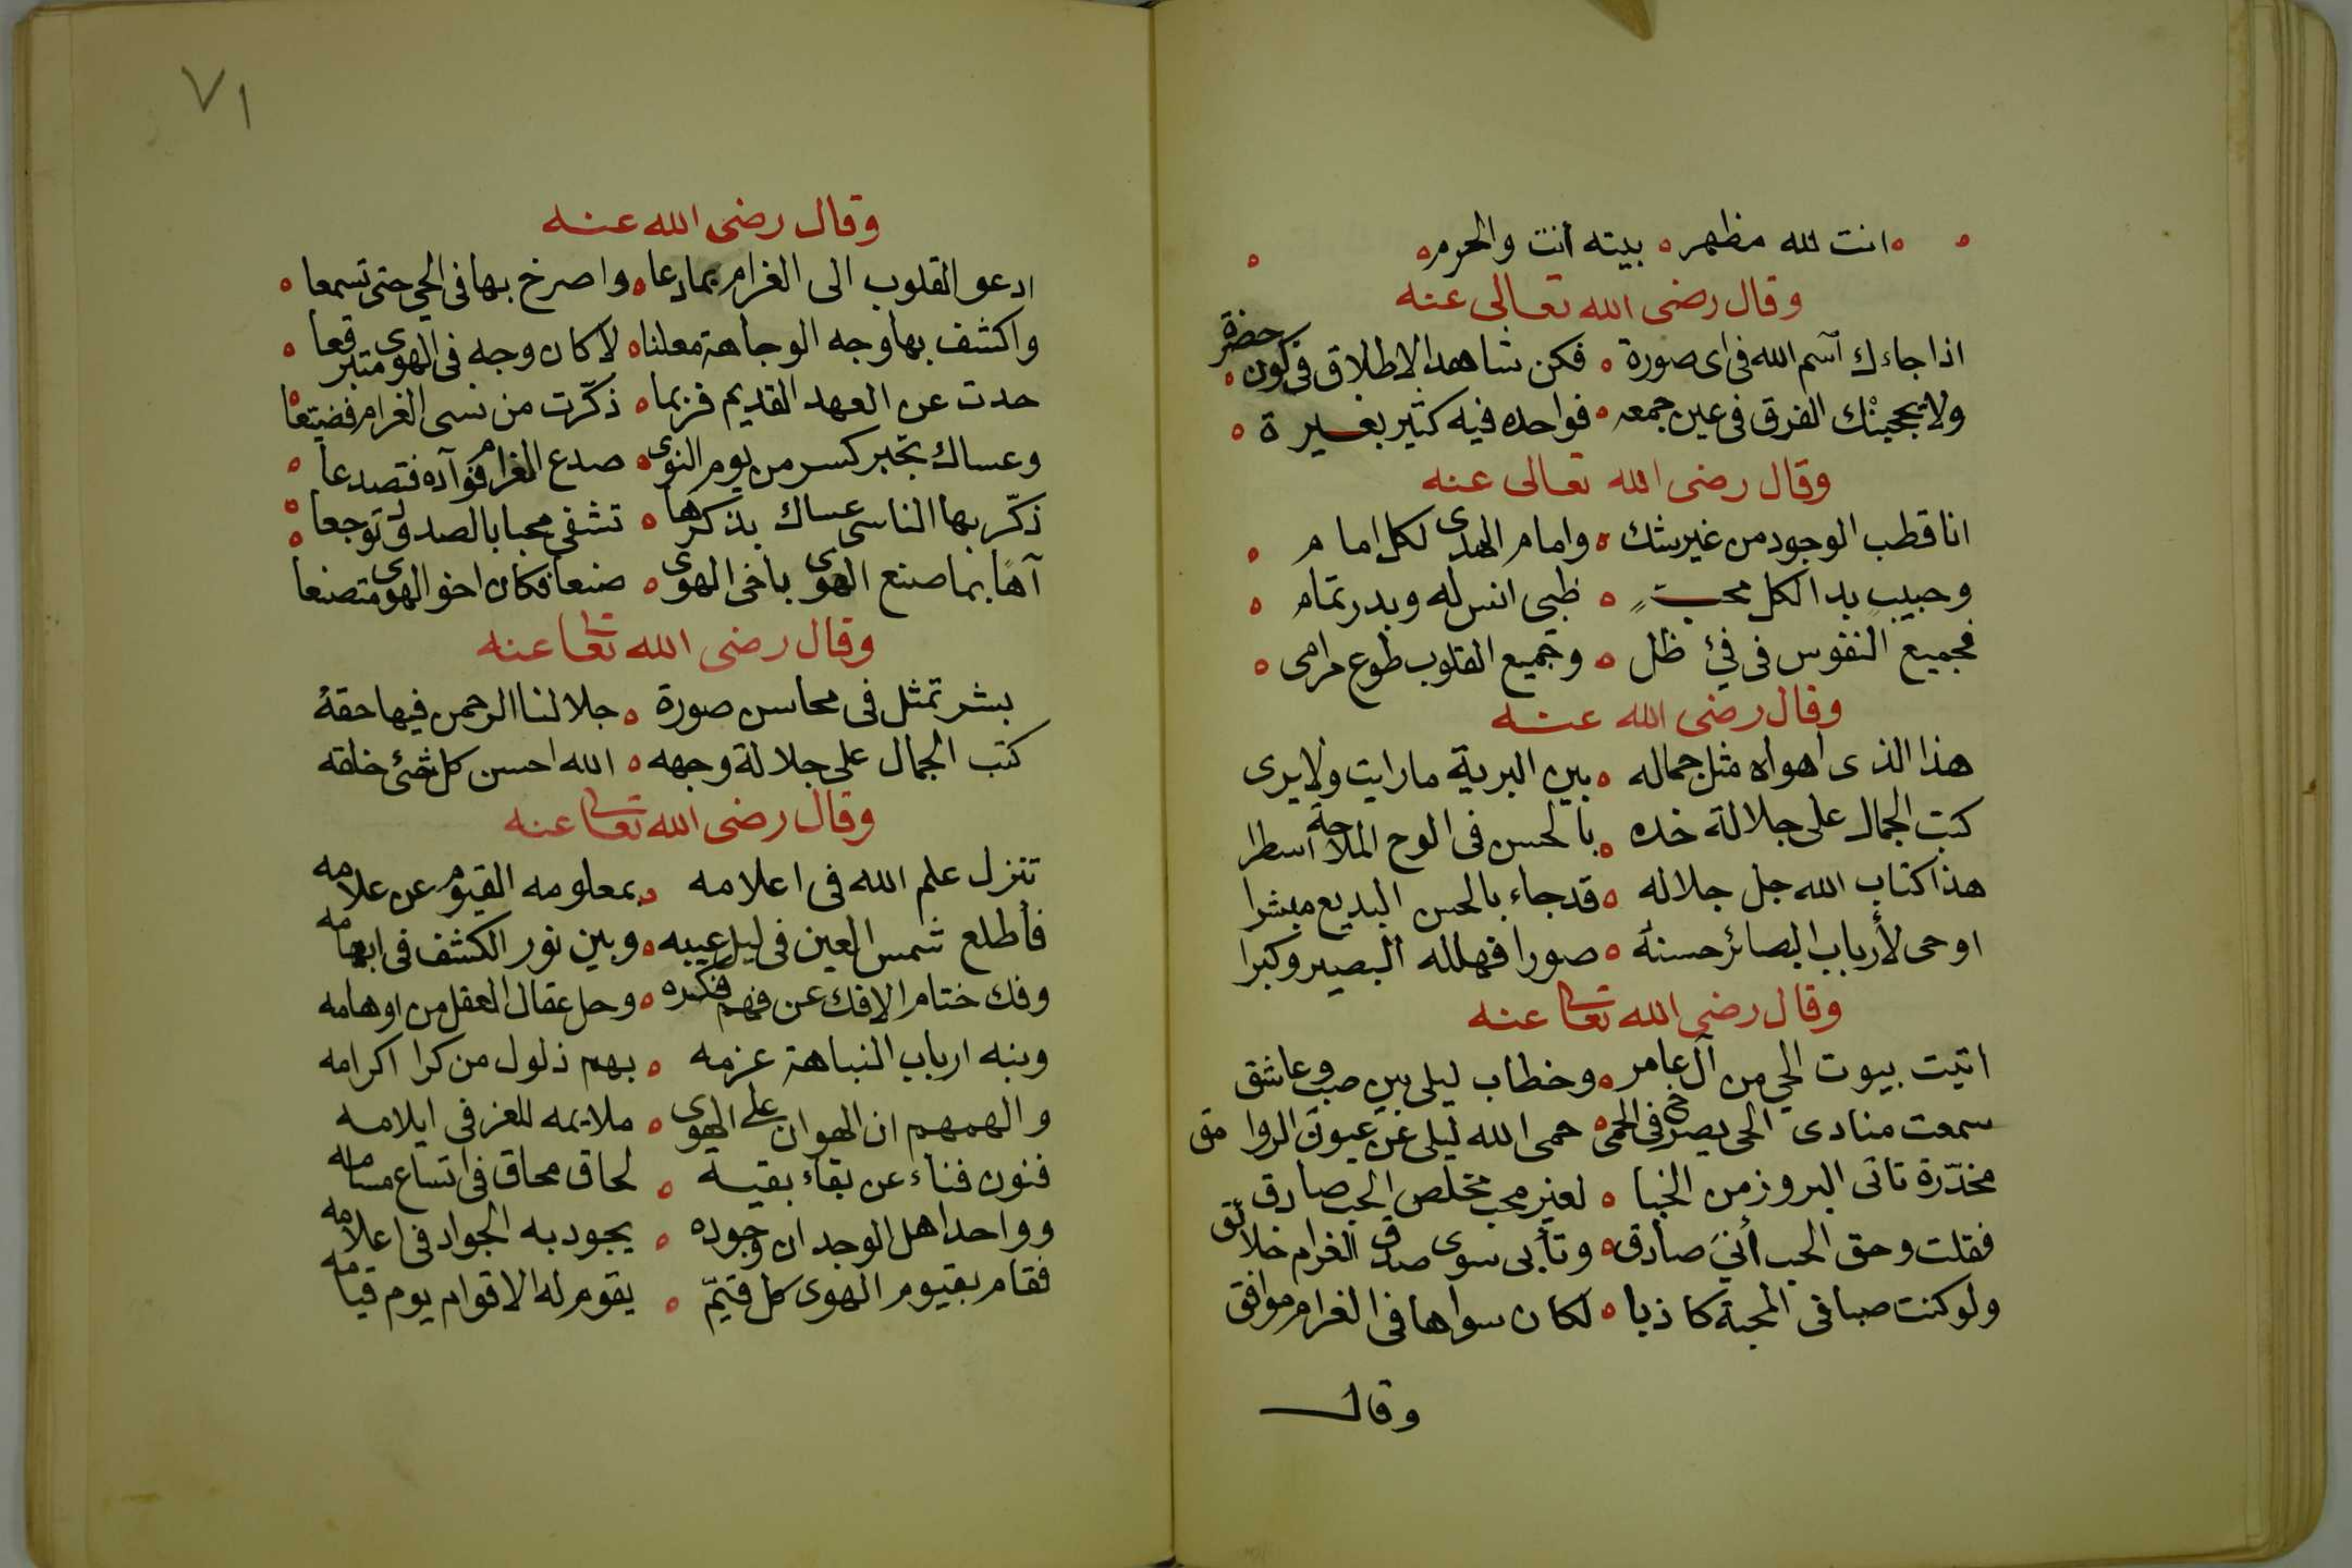 انت لله مظهر ه بيته انت والحرم
وقال رضى الله تعالى عنه
اذا جاءك اسم الله فى اى صورة ه فكن شاهد الاطلاق فى كون حضرة
ولا يحجبنك الفرق فى عين جمعه ه فواحده فيه كثير بغيرة
وقال رضى الله تعالى عنه
انا قطب الوجود من غير شك ه وامام الهدى لكل امام
وحبيب بدا لكل محب ه ظبى انس له وبدر تمام
فجميع النفوس فى فئ ظل ه وجميع القلوب طوع مرامى
وقال رضى الله عنه
هذا الذى اهواه مثل جماله ه بين البرية ما رايت ولا يرى
كتب الجمال على جلالة خده ه بالحسن فى لوح الملاحة اسطرا
هذا كتاب الله جل جلاله ه قد جاء بالحسن البديع مبشرا
اوحى لأرباب البصائر حسنه ه صورا فهلله البصير وكبرا
وقال رضى الله تعالى عنه
اتيت بيوت الحي من آل عامر ه وخطاب ليلى بين صب وعاشق
سمعت منادى الحى يصرخ فى الحمى ه حمى الله ليلى عن عيون الروامق
مخدّرة تاتى البروز من الخبا ه لغير محب مخلص الحب صادق
فقلت وحق الحب أنى صادق ه وتأبى سوى صدق الغرام خلائق
ولو كنت صبا فى المحبة كاذبا ه لكان سواها فى الغرام موافق
وقال
٧١
وقال رضى الله عنه
ادعو القلوب الى الغرام بما دعا ه واصرخ بها فى الحي حتى تسمعا
واكشف بها وجه الوجاهة معلنا ه لا كان وجه فى الهوى متبرقعا
حدث عن العهد القديم فربما ه ذكّرت من نسى الغرام فضيعا
وعساك تجبر كسر من يوم النوى ه صدع الغرام فوآده فتصدعا
ذكّر بها الناسى عساك بذكرها ه تشفى محبا بالصدود توجعا
آها بما صنع الهوى باخى الهوى ه صنعا فكان اخو الهوى متصنعا
وقال رضى الله تعالى عنه
بشر تمثل فى محاسن صورة ه جلا لنا الرحمن فيها حقهُ
كتب الجمال على جلالة وجهه ه الله احسن كل شئ خلقه
وقال رضى الله تعالى عنه
تنزل علم الله فى اعلامه ه بمعلومه القيوم عن علامه
فأطلع شمس العين فى ليل غيبه ه وبين نور الكشف فى ابهامه
وفك ختام الافك عن فهم فكره ه وحل عقال العقل من اوهامه
ونبه ارباب النباهة عزمه ه بهم ذلول من كرا اكرامه
والهمهم ان الهوان على الهوى ه ملايمه للعز فى ايلامه
فنون فناء عن بقاء بقية ه لحاق محاق فى اتساع مسامه
وواحد اهل الوجد ان وجوده ه يجود به الجواد فى اعلامه
فقام بقيوم الهوى كل قيّم ه يقوم له الاقوام يوم قيامه